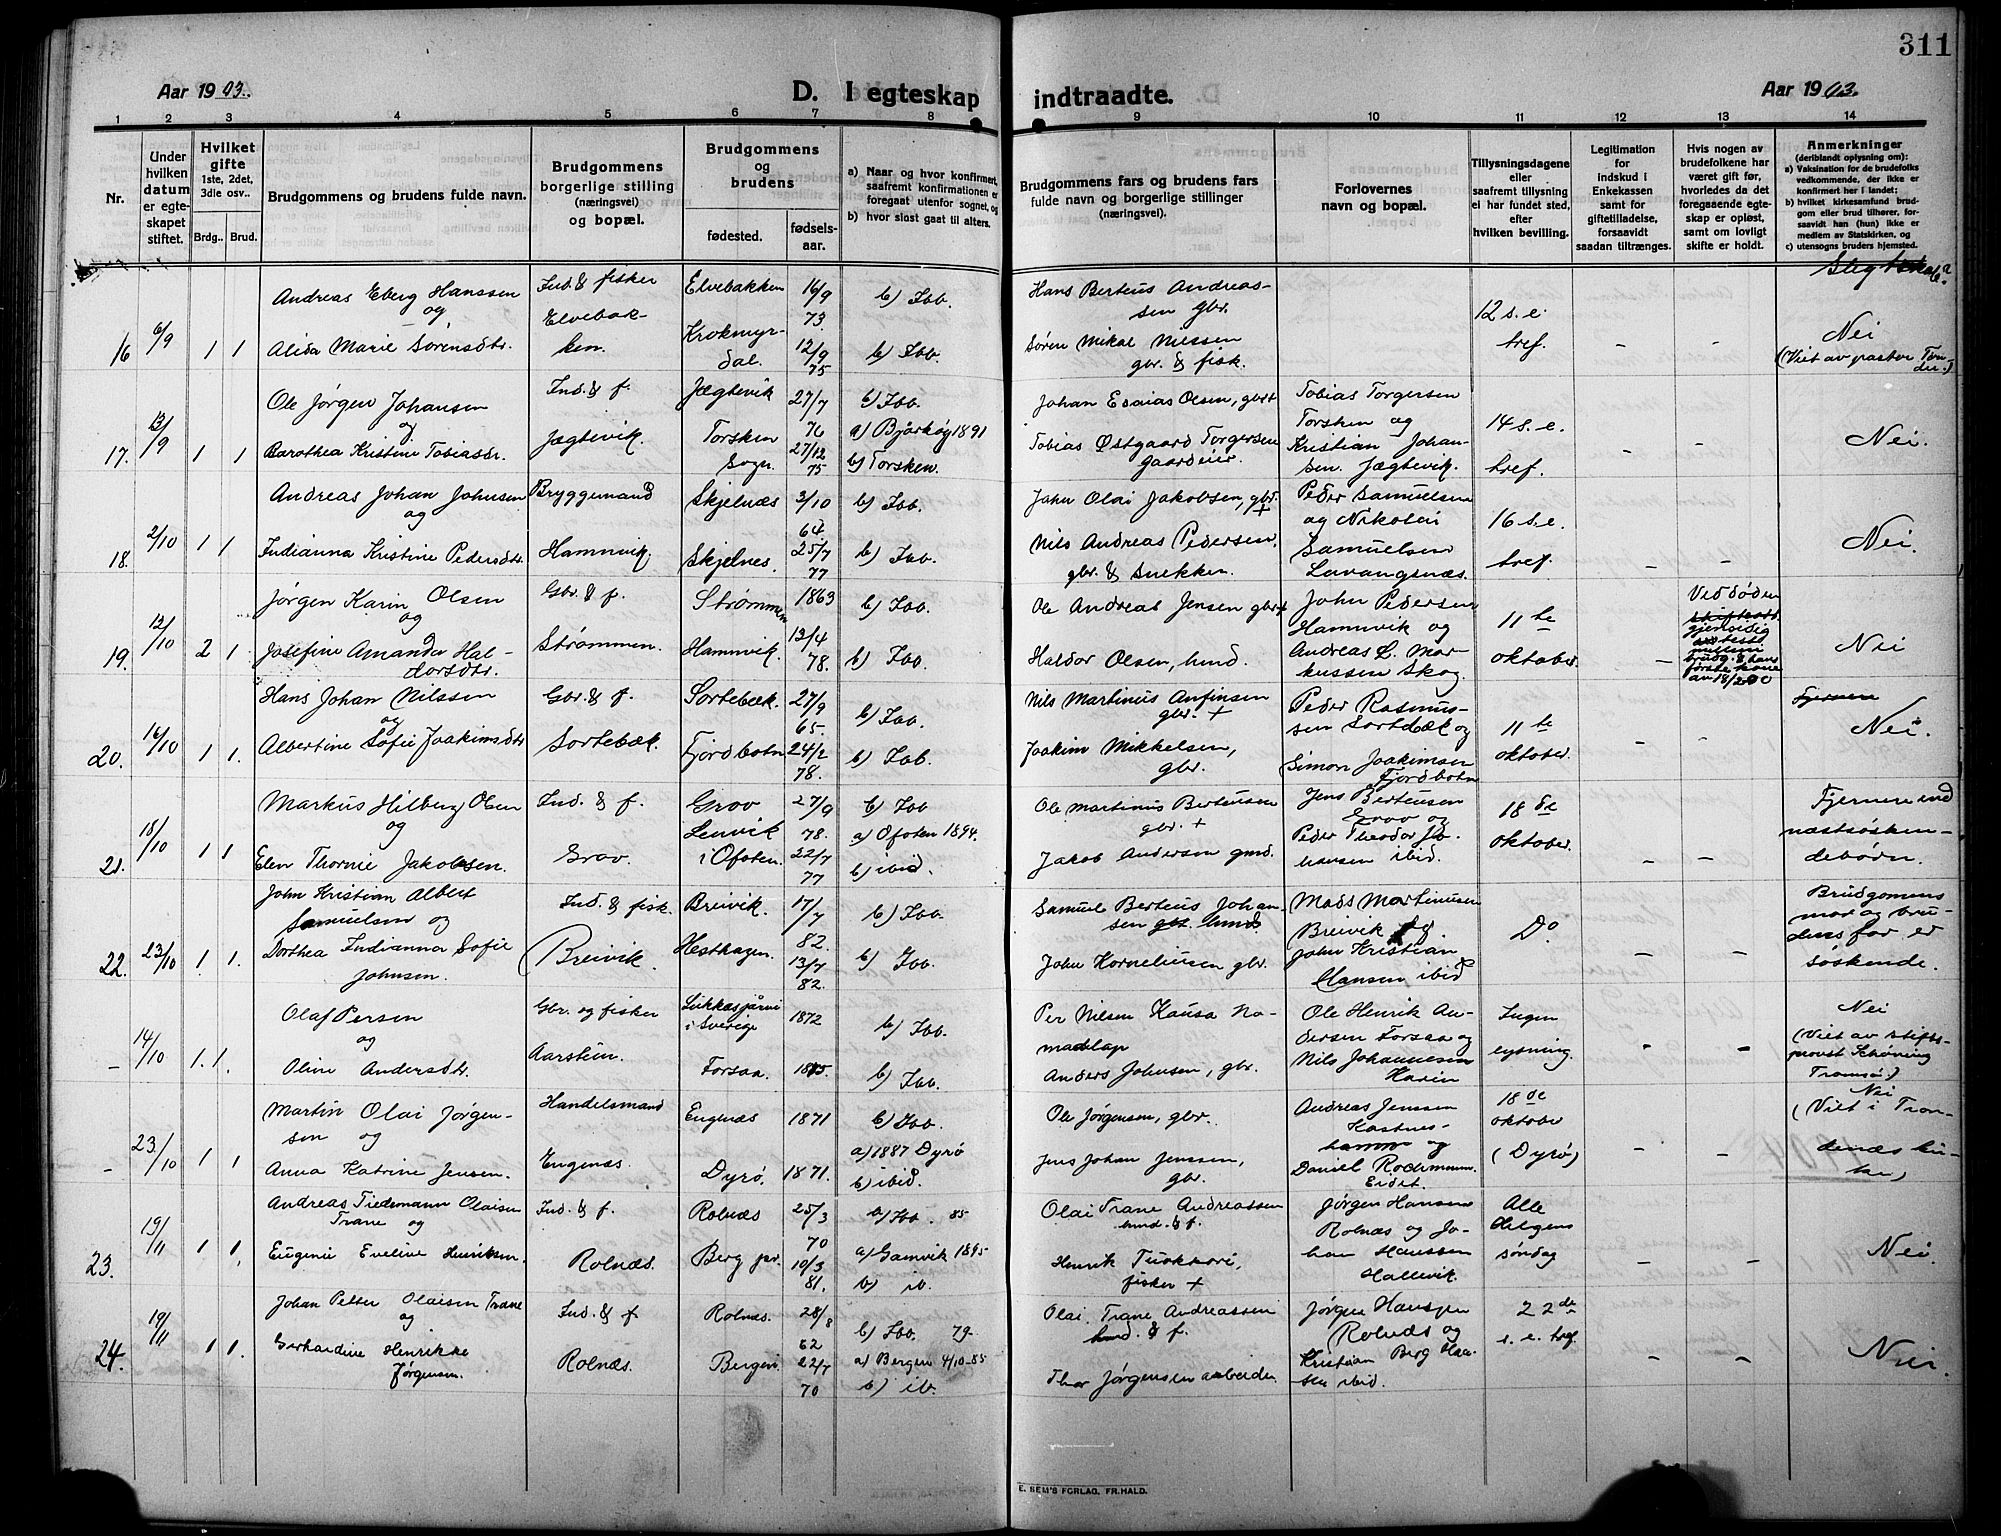 311
Aar 1903.
D. I egteskap indtraadte.
Aar 1903.
1 2 3 4 5 6 7 8 9 10 11 12 13 14
Nr.
Under hvilken datum er egteskapet stiftet.
Hvilket gifte 1ste, 2det, 3dle osv..
Brdg.. Brud.
Brudgommens og brudens fulde navn.
Brudgommens borgerlige stilling (næringsvei) og bopæl.
Brudgommens og brudens
fødested.
fødselsaar.
a) Naar og hvor konfirmert, saafremt konfirmationen er foregaat utenfor sognet, og
b) hvor sisst gaat til alters.
Brudgommens fars og brudens fars fulde navn og borgerlige stillinger (næringsvei).
Forlovernes navn og bopæl.
Tillysningsdagene eller saafremt tillysning ei har fundet sted, efter hvilken bevilling.
Legitimation for indskud i Enkekassen samt for giftetilladelse, forsaavidt saadan tiltrænges.
Hvis nogen av brudefolkene har været gift før, hvorledes da det foregaaende egteskap er opløst, samt om lovligt skifte er holdt.
Anmerkninger (deriblandt oplysning om):
a) Vaksination for de brudefolks vedkommende, der ikke er konfirmert her i landet;
b) hvilket kirkesamfund brudgom eller brud tilhører, forsaavidt han (hun) ikke er medlem av Statskirken, og
c) utensogns bruders hjemsted.
16 6/9 1 1
Andreas Eberg Hanssen
og
Alida Marie Sørensdtr.
Ind. & fisker
Elvebakken.
Elvebakken 16/9 73
Krokmyrdal. 12/9 75
b) Ibb.
b) Ibb.
Hans Berteus Andreassen gbr.
Søren Mikal Nilssen
gbr. & fisk.
12 s. e. tref.
- -
Nei
(Viet av pastor
17. 13/9 1 1
Ole Jørgen Johansen
og
Dorothea Kristine Tobiasdr.
Ind. & f.
Jægtevik.
Jægtevik 27/7 76
Torsken Sogn 27/12 75
b) Ibb.
a) Bjarkøy 1891
b) Torsken.
Johan Esaias Olsen, gbr
Tobias Østgaard Torgersen
gaardeier.
Tobias Torgersen
Torsken og
Kristian Johansen. Jægtevik.
14 s. e. tref.
- -
Nei.
18. 2/10 1 1
Andreas Johan Johnsen
og
Indianna Kristine Pedersdtr.
Bryggemand
Hamnvik.
Skjelnæs 3/10 64.
Skjelnes. 25/7 77
b) Ibb.
b) Ibb.
John Olai Jakobsen, gbr. +
Nils Andreas Pedersen,
gbr. & snekker.
Peder Samuelsen
og Nikolai
Samuelsen
Lavangsnæs.
16 s. e. tref.
- -
Nei.
19. 12/10 2 1
Jørgen Karin Olsen
og
Josefine Amanda Haldorsdtr.
Gbr. & f.
Strømmen.
Strømmen 1863
Hamnvik. 12/4 78.
b) Ibb.
b) Ibb.
Ole Andreas Jensen gbr. +
Haldor Olsen, husd.
John Pedersen
Hamnvik og
Andreas L. Markussen Skog.
11te oktober.
-
Ved døden
gjensidig
brudg. & hans
første kone
an 18/2 00
Nei
20. 16/10 1 1.
Hans Johan Nilssen
og
Albertine Sofie Joakimsdtr
Gbr. & f.
Sortebæk.
Sortebæk. 27/9 65.
Fjordbotn 24/2 78.
b) Ibb.
b) Ibb.
Nils Martinus Anfinsen
gbr. +
Joakim Mikkelsen,
gbr.
Peder Rasmussen Sortebæk og
Simon Joakimsen
Fjordbotn
11te oktober.
- -
Nei.
21. 18/10 1 1
Markus Hilberg Olsen
og
Elen Thornie Jakobsen.
Ind. & f.
Grov.
Grov 27/9 78.
Lenvik i Ofoten. 22/7 77
b) Ibb
a) Ofoten 1894.
b) ibid.
Ole Martinus Berteusen
gbr. +
Jakob Andersen gmd.
Jens Berteusen
Grov og
Peder Theodor Johansen ibid.
18de oktober.
- -
Fjernere end
næstsøskendebørn.
22. 23/10 1. 1.
John Kristian Albert
Samuelsen og
Dorthea Indianna Sofie
Johnsen.
Ind. & fisk.
Breivik.
Breivik. 17/7 82.
Hesthagen. 13/7 82.
b) Ibb.
b) Ibb.
Samuel Berteus Johansen husd
John Korneliusen gbr.
Mads Martinusen
Breivik og
John Kristian
Hansen ibid
Do
- -
Brudgomens
mor og brudens far er
søskende.
- 14/10 1. 1.
Olaf Persen
og
Oline Andersdtr.
Gbr. og fisker
Aarstein.
Jukkasjärvi i Sverige 1872
Forsaa. 1885.
b) Ibb.
b) Ibb.
Per Nilsen Kausa Nomadelap
Anders Johnsen, gbr.
Ole Henrik Andersen Forsaa og
Nils Johannesen
Ingen lysning.
- -
Nei
(Viet av stiftsprovst Schøning
Tromsø.)
- 23/10 1 1
Martin Olai Jørgensen og
Anna Katrine Jensen.
Handelsmand
Engenæs.
Engenæs 1871
Dyrø. 1871.
b) Ibb.
a) 1887 Dyrø
b) ibid.
Ole Jørgensen, gbr.
Jens Johan Jenssen,
gbr.
Andreas Jenssen
Kastneshamn og
Daniel
18de oktober
(Dyrø)
- -
Nei
(Viet i Trondenæs kirke)
23. 19/11 1 1.
Andreas Tiedemann Olaisen
Trane og
Eugenie Eveline Henriksen.
Ind. & f.
Rolnæs.
Rolnæs 25/3 70
Berg pr. 10/3 81.
b) Ibb. 85
a) Gamvik 1895
b) ib.
Olai Trane Andreassen
husd. & f.
Henrik
fisker +
Jørgen Hansen
Rolnæs og Johan Hanssen
Hallevik.
Alle helgens søndag
- -
Nei.
24. 19/11 1 1.
Johan Petter Olaisen Trane
og
Gerhardine Henrikke
Jørgensen.
Ind. & f
Rolnæs.
Rolnæs. 28/8 62
Bergen. 22/7 70
b) Ibb. 79.
a) Bergen 4/10-85
b) ib.
Olai Trane Andreassen
husd. & f.
Thor Jørgensen arbeider
Jørgen Hanssen
Rolnæs og
Kristian Berg Hansen ibid.
22de s. e. tref
- -
Nei
E. SEM'S FORLAG. FR.HALD.